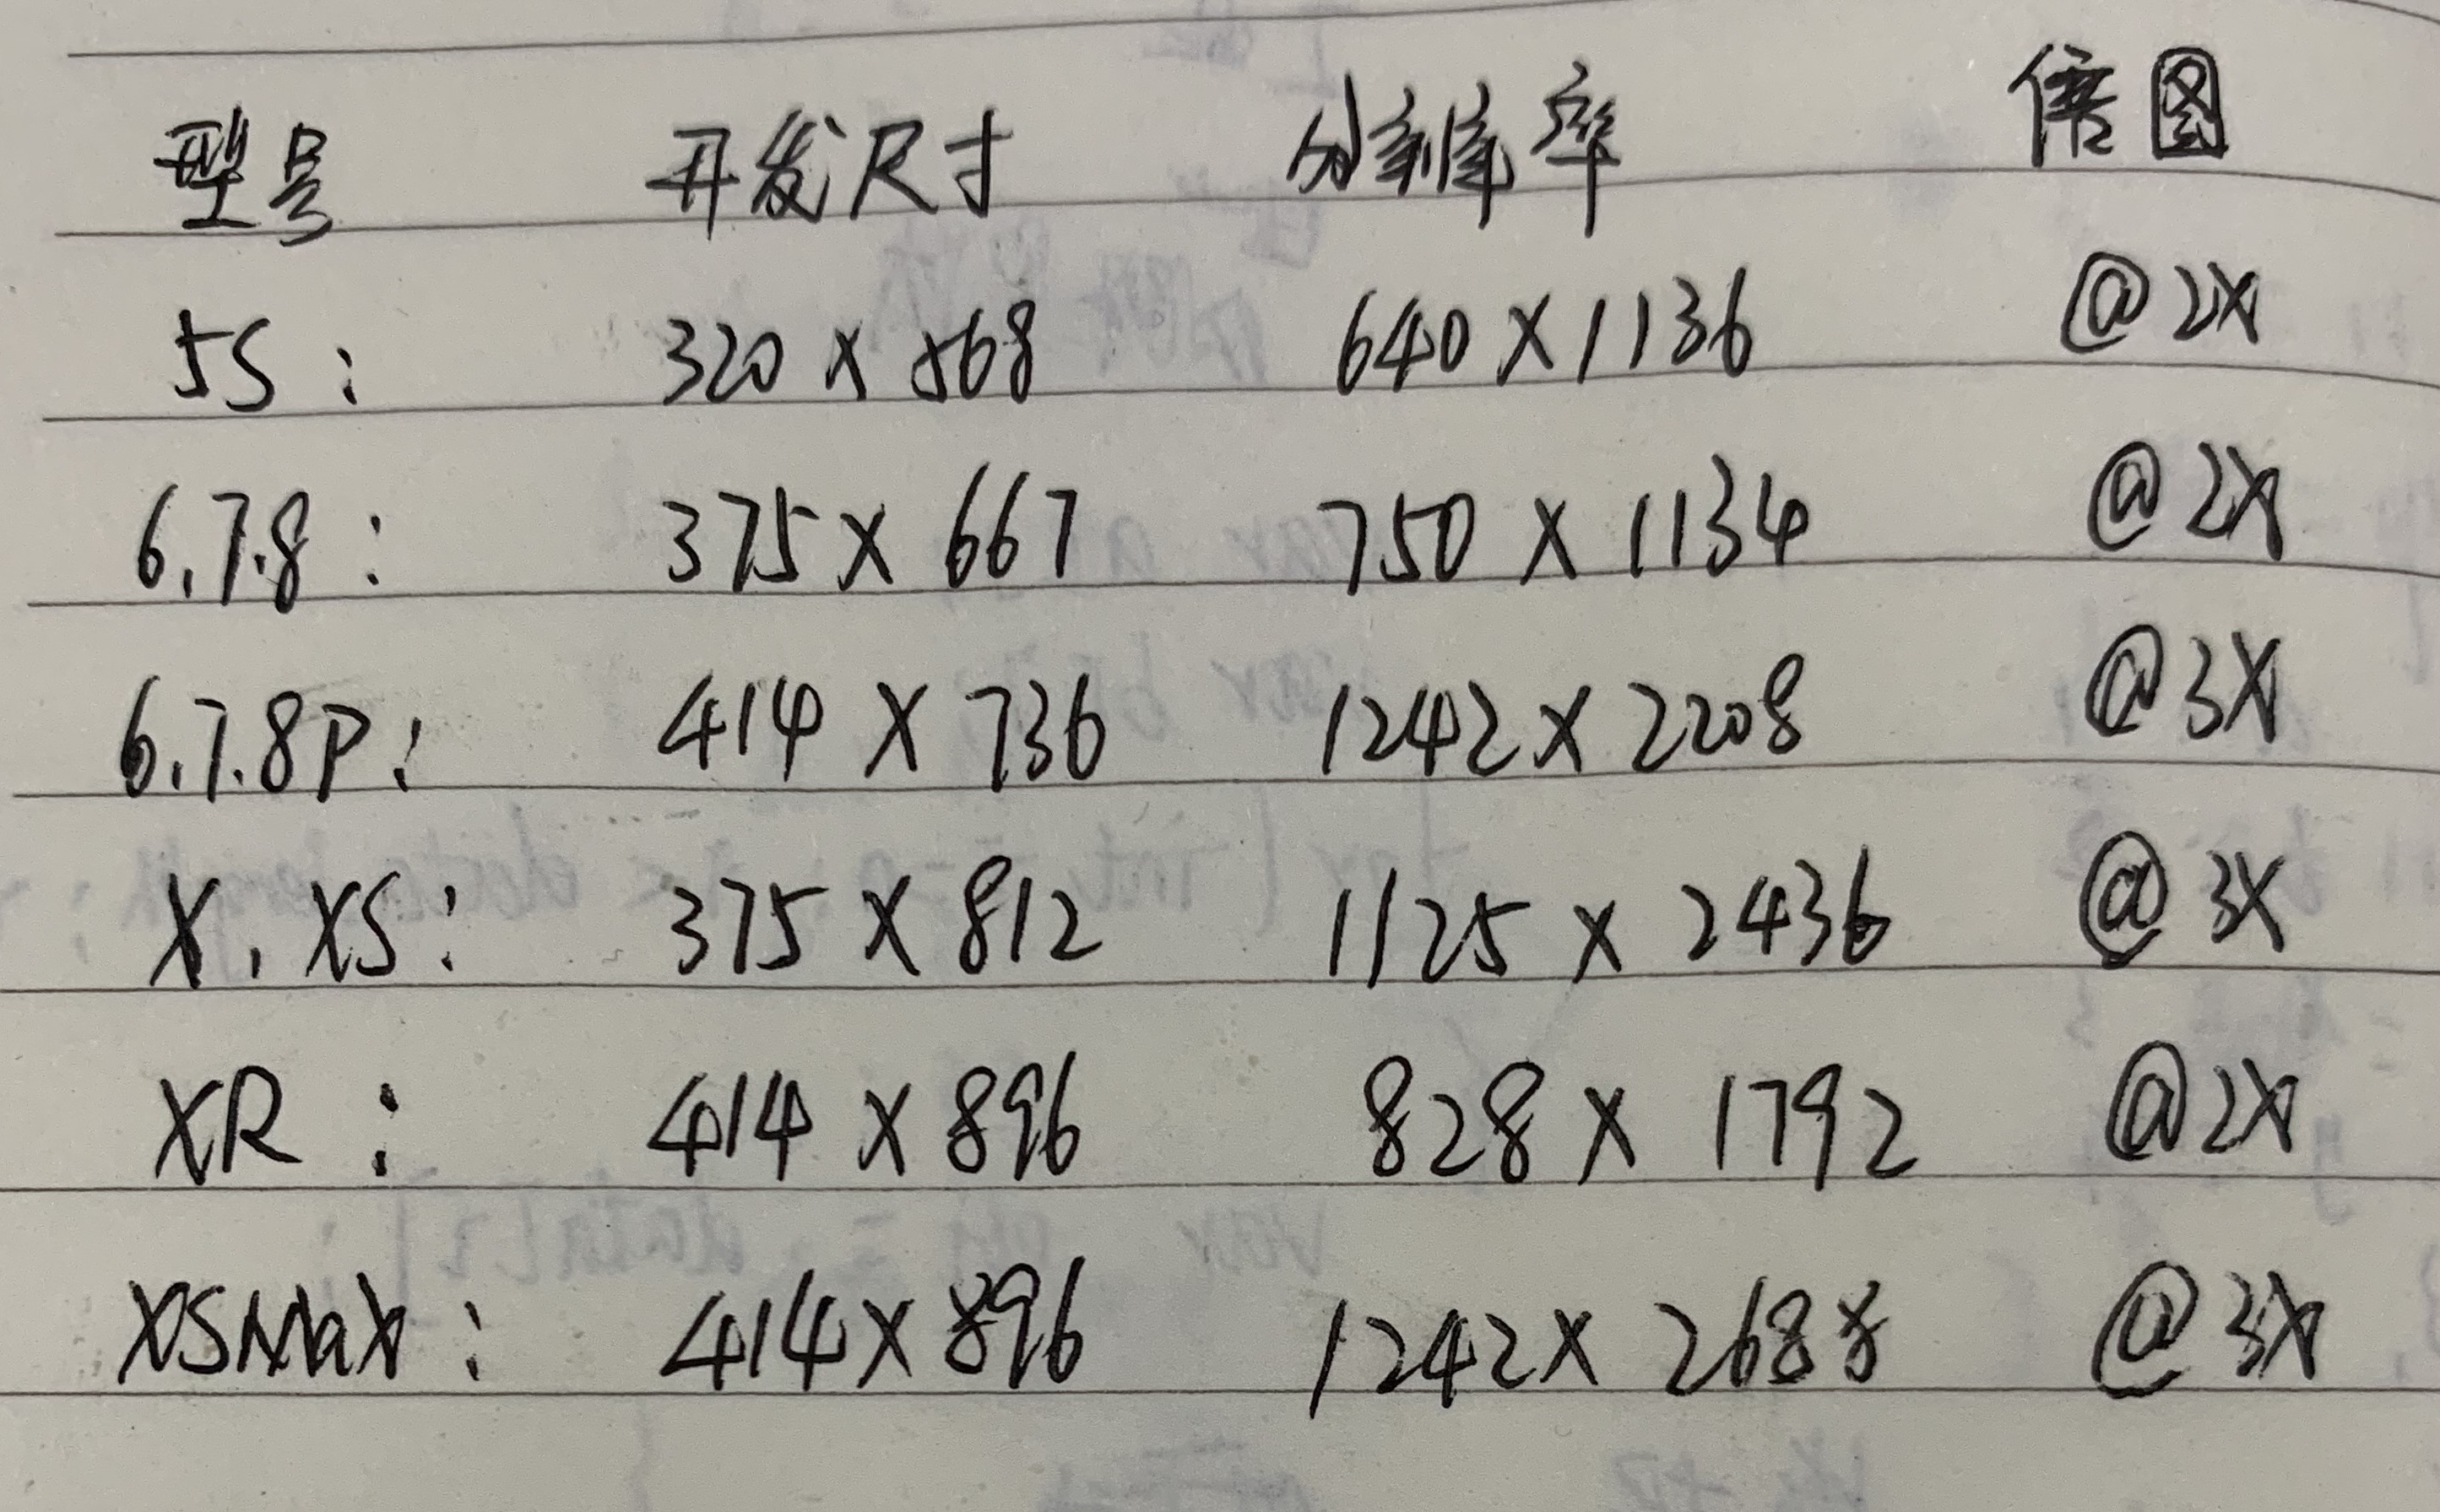 型号 开发尺寸 分辨率 倍图
5S: 320 x 568 640 x 1136 @2X
6.7.8: 375 x 667 750 x 1134 @2X
6.7.8P: 414 x 736 1242 x 2208 @3X
X.XS: 375 x 812 1125 x 2436 @3X
XR: 414 x 896 828 x 1792 @2X
XSMax: 414 x 896 1242 x 2688 @3X